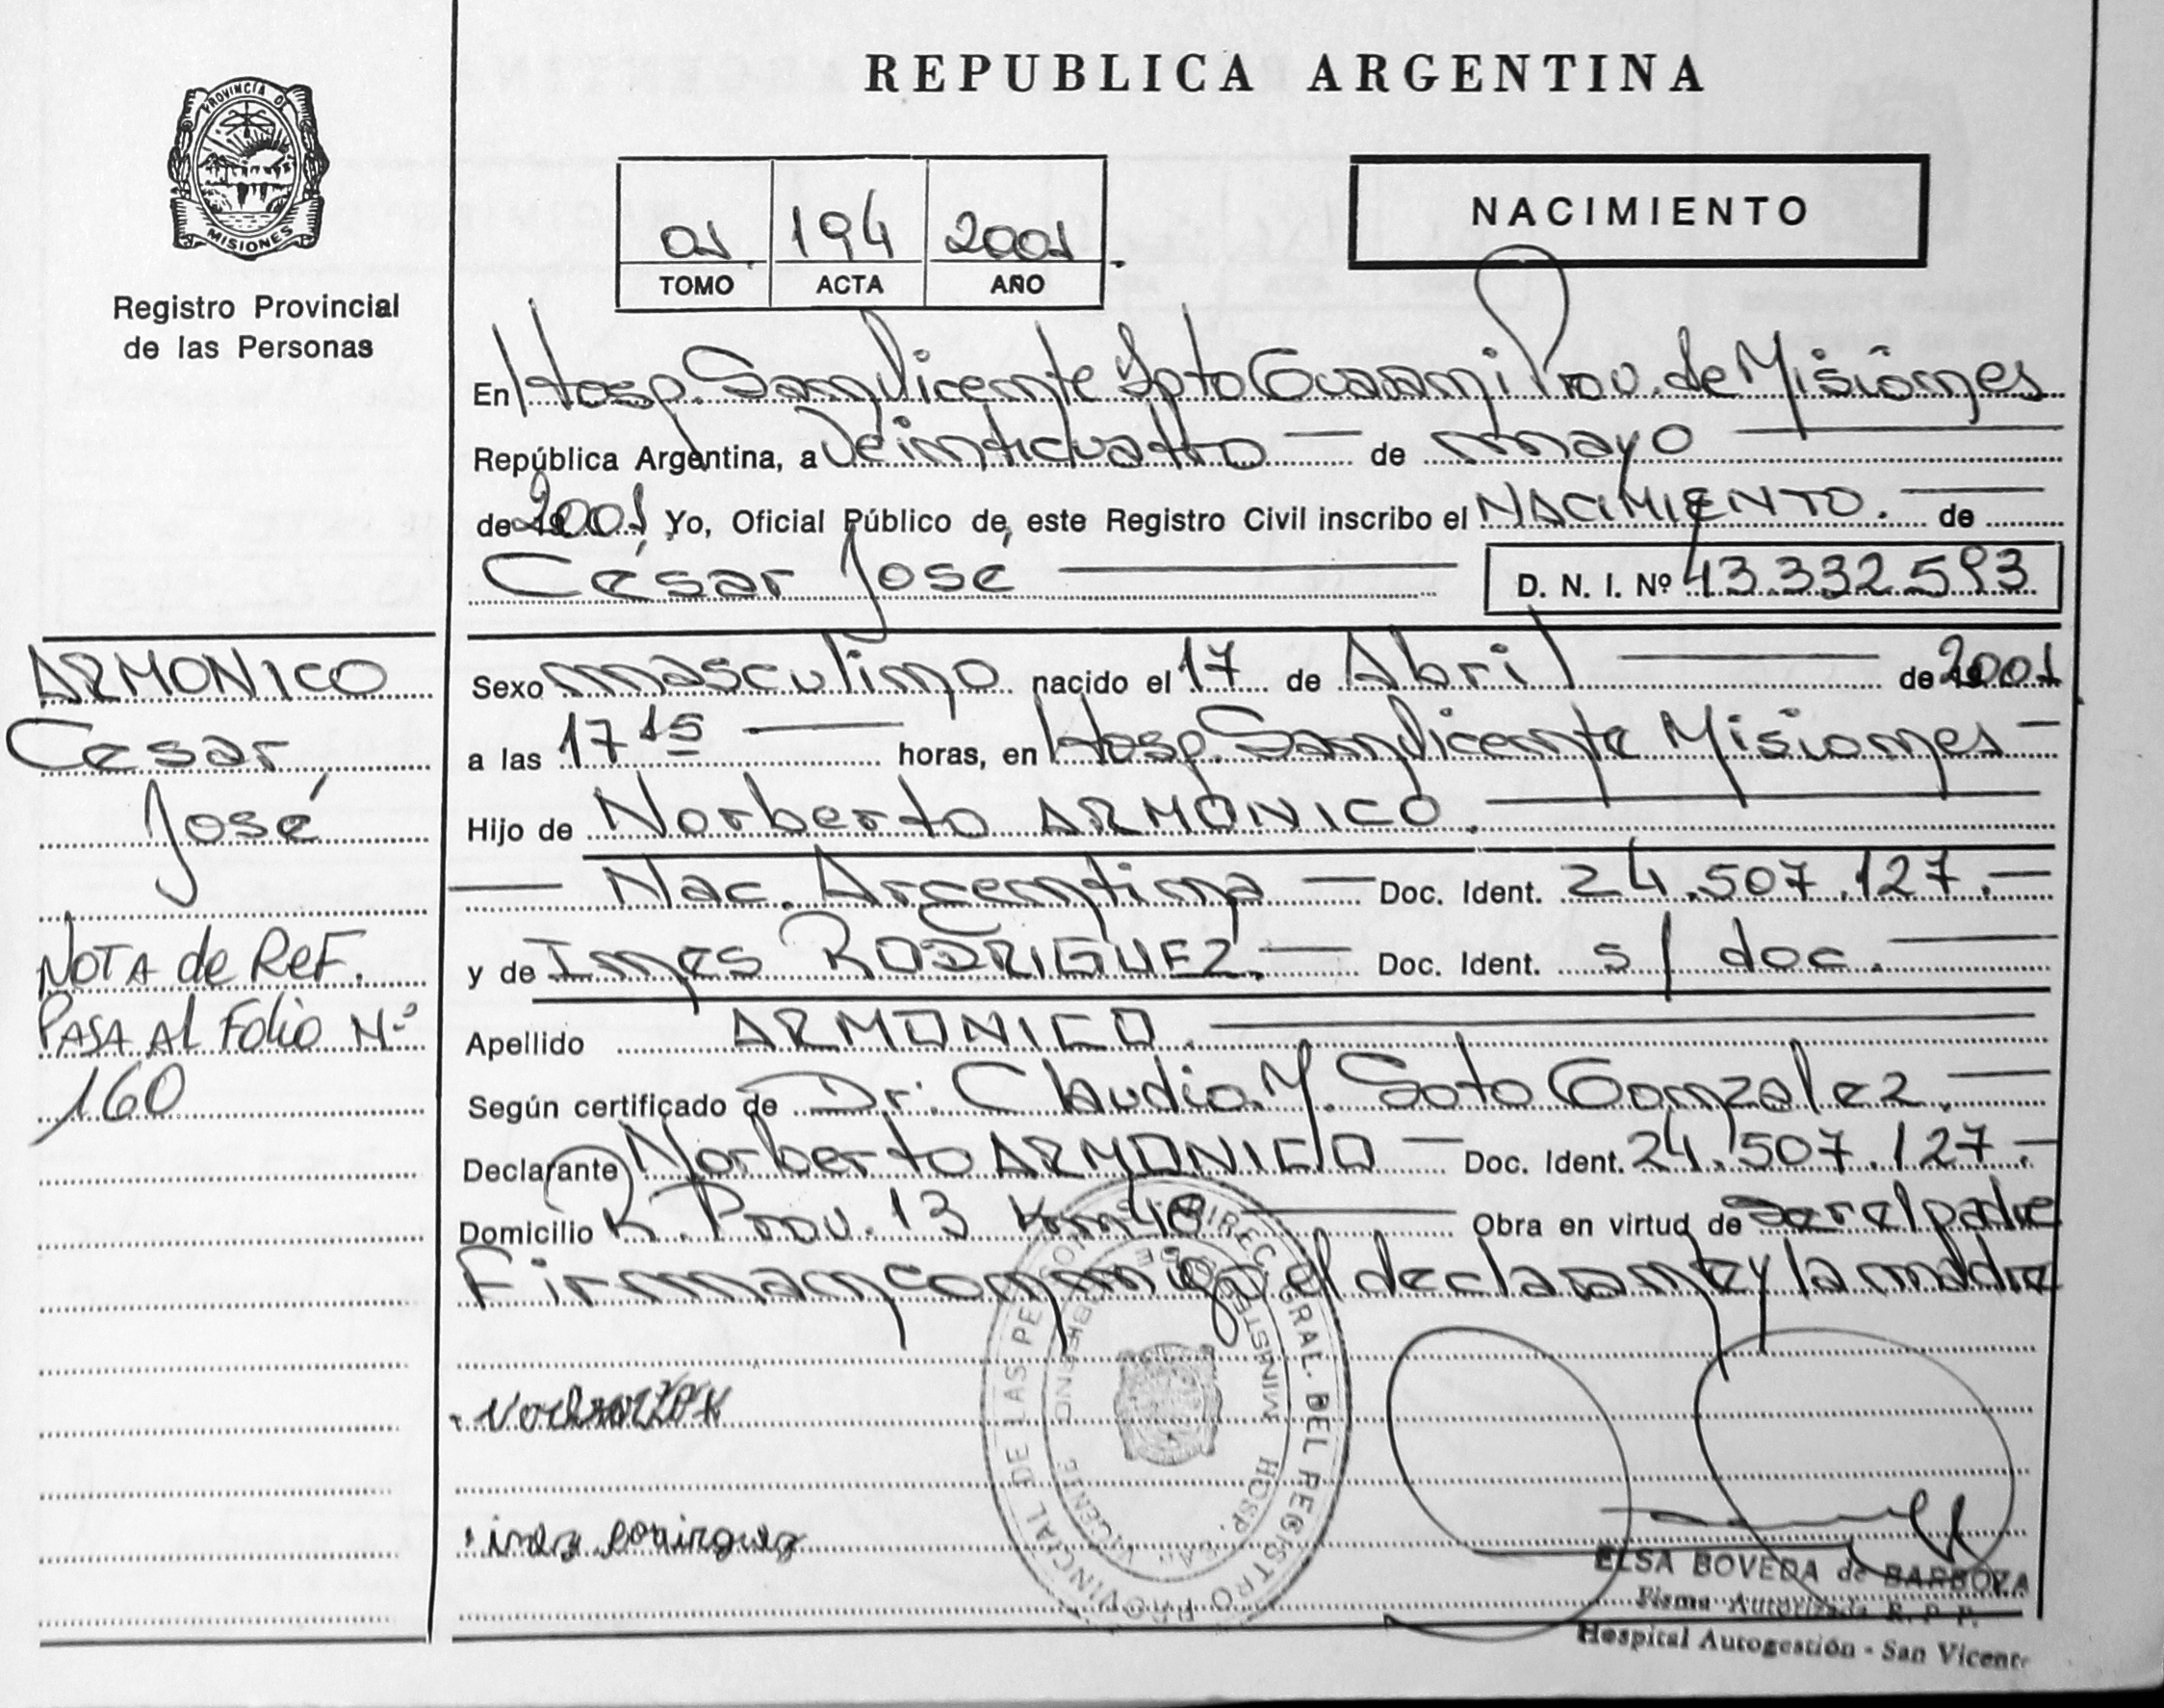 REPUBLICA ARGENTINA
PROVINCIA DE
MISIONES
Registro Provincial
de las Personas
01 194 2001
TOMO ACTA AÑO
NACIMIENTO
En Hosp. San Vicente Dpto Guarani Prov. de Misiones
República Argentina, a Veinticuatro — de mayo
de 2001 Yo, Oficial Público de este Registro Civil inscribo el NACIMIENTO. — de
César José — D. N. I. Nº 43.332.593
Sexo masculino nacido el 17 de Abril — de 2001
a las 17 15 — horas, en Hosp. San Vicente Misiones —
Hijo de Norberto ARMONICO.
— Nac. Argentina — Doc. Ident. 24.507.127.—
y de Ines RODRIGUEZ.— Doc. Ident. s/ doc.—
Apellido ARMONICO.—
Según certificado de Dr. Claudio M. Soto Gonzalez.—
Declarante Norberto ARMONICO — Doc. Ident. 24.507.127.—
Domicilio R. Prov. 13 Km 40 — Obra en virtud de Ser el padre
Firman conmigo el declarante y la madre
ARMONICO
Cesar
José
NOTA de ReF.
PASA AL Folio Nº
160
DIREC. GRAL. DEL REGISTRO PROVINCIAL DE LAS PERSONAS
MINISTERIO DE GOBIERNO
HOSP. SAN VICENTE
ELSA BOVEDA de BARBOZA
Firma Autorizada R. P. P.
Hospital Autogestión - San Vicente